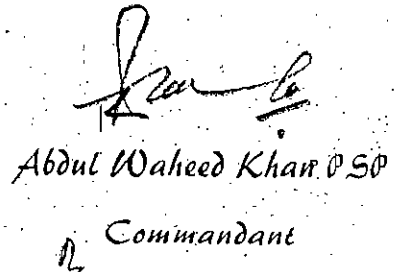 Abdul Waheed Khan PSP
Commandant